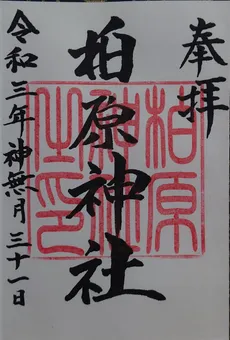 奉拝
柏原神社
柏原神社之印
令和三年神無月三十一日